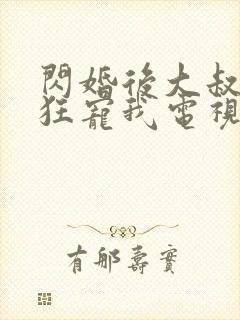 閃婚後大叔
狂寵我電視
有邮壽實